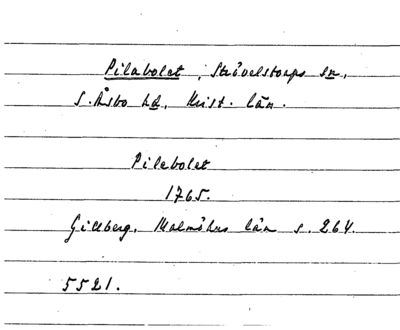 Pilabolet, Strövelstorps sn,
S. Åsbo hd, Krist. län.
Pilebolet
1765.
Gillberg, Malmöhus län s. 264.
5521.